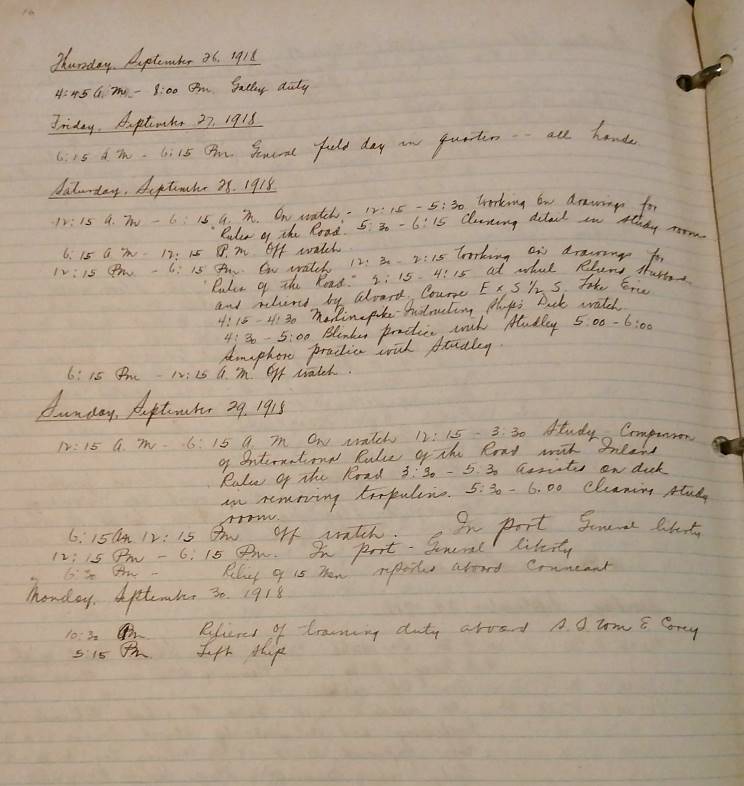 16
Thursday, September 26, 1918
4:45 A.M. - 8:00 Pm. Galley duty
Friday, September 27, 1918
6:15 A.M - 6:15 Pm. General field day in quarters -- all hands
Saturday, September 28, 1918
12:15 A.M - 6:15 A.M. On watch - 12:15 - 5:30 Working on drawings for
"Rules of the Road. 5:30 - 6:15 Cleaning detail in study room
6:15 A.M - 12:15 P.M. Off watch
12:15 Pm - 6:15 Pm. On watch 12:30 - 2:15 Working on drawings for
"Rules of the Road." 2:15 - 4:15 at wheel Relieved Hubbard
and relieved by Alvard. Course E x S 1/2 S. Lake Erie
4:15 - 4:30 Marlinspike-Instructing Ship's Deck watch
4:30 - 5:00 Blinker practice with Studley 5:00 - 6:00
Semaphore practice with Studley.
6:15 Pm - 12:15 A.M. Off watch.
Sunday, September 29, 1918
12:15 A.M - 6:15 A.M On watch 12:15 - 3:30 Study - Comparison
of International Rules of the Road with Inland
Rules of the Road 3:30 - 5:30 assisted on deck
in removing tarpulins. 5:30 - 6:00 Cleaning study
room.
6:15 Am 12:15 Pm Off watch. In port General liberty
12:15 Pm - 6:15 Pm. In Port - General liberty
6:30 Pm - Relief of 15 Men reported aboard Conneaut
Monday, September 30, 1918
10:30 Relieved of training duty aboard S.S Wm E Corey
5:15 Pm. Left ship